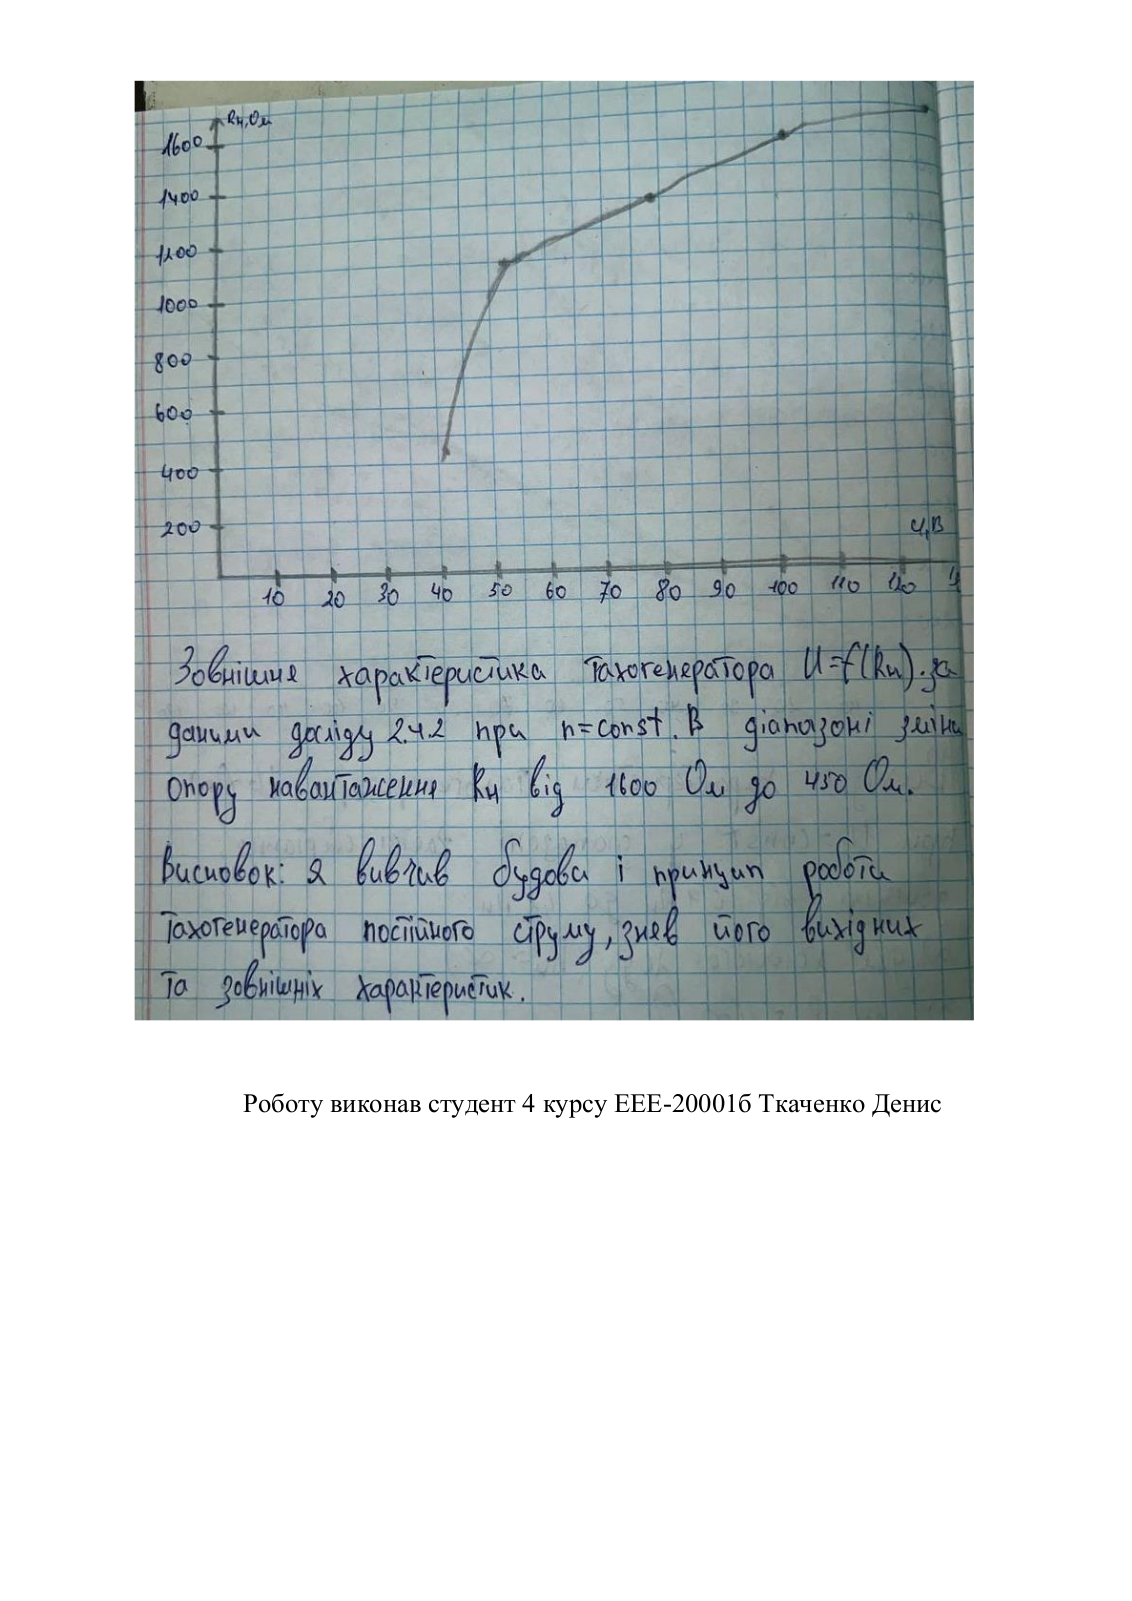 Rн,Ом
1600
1400
1200
1000
800
600
400
200
U,В
10 20 30 40 50 60 70 80 90 100 110 120
Зовнішня характеристика тахогенератора U=f(Rн).за
даними досліду 2.4.2 при n=const. В діапазоні зміни
опору навантаження Rн від 1600 Ом до 450 Ом.
Висновок: Я вивчив будова і принцип роботи
тахогенератора постійного струму, знев його вихідних
та зовнішніх характеристик.
Роботу виконав студент 4 курсу ЕЕЕ-20001б Ткаченко Денис